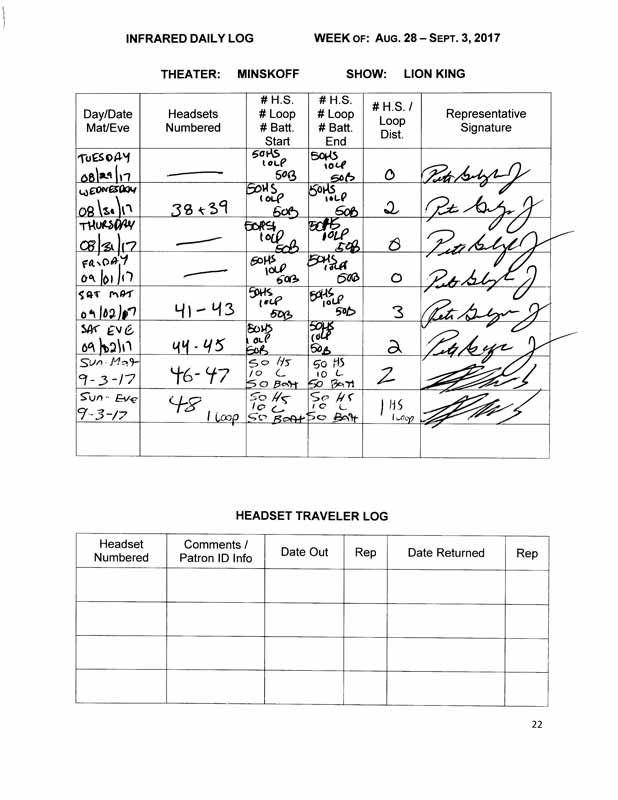 INFRARED DAILY LOG WEEK OF: AUG. 28 – SEPT. 3, 2017
THEATER: MINSKOFF SHOW: LION KING
Day/Date
Mat/Eve
Headsets
Numbered
# H.S.
# Loop
# Batt.
Start
# H.S.
# Loop
# Batt.
End
# H.S. /
Loop
Dist.
Representative
Signature
TUESDAY
08/29/17
—
50HS
10LP
50B
50HS
10LP
50B
0
WEDNESDAY
08/30/17
38+39
50HS
10LP
50B
50HS
10LP
50B
2
THURSDAY
08/31/17
—
10LP
50B
50HS
10LP
50B
0
FRIDAY
09/01/17
—
50HS
10LP
50B
50HS
50B
0
SAT MAT
09/02/17
41-43
50HS
10LP
50B
50HS
10LP
50B
3
SAT EVE
09/02/17
44-45
50HS
10LP
50B
50HS
10LP
50B
2
Sun-Mat
9-3-17
46-47
50 HS
10 L
50 Batt
50 HS
10 L
50 Batt
2
Sun-Eve
9-3-17
48
1 Loop
50 HS
10 L
50 Batt
50 HS
10 L
50 Batt
1 HS
1 Loop
HEADSET TRAVELER LOG
Headset
Numbered
Comments /
Patron ID Info
Date Out
Rep
Date Returned
Rep
22